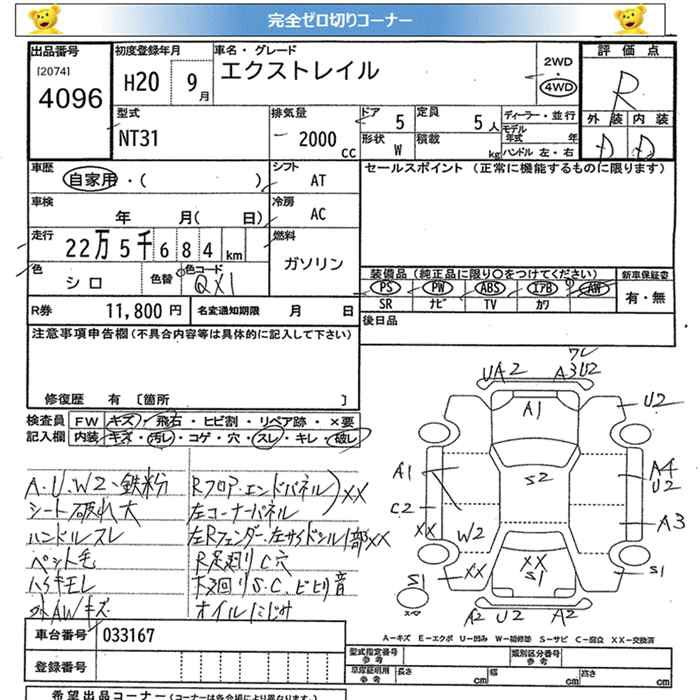 完全ゼロ切りコーナー
出品番号
[2074]
4096
初度登録年月
H20
9
月
車名・グレード
エクストレイル
2WD
4WD
評価点
R
外装 内装
D D
型式
NT31
排気量
2000
CC
ドア
5
定員
5 人
形状
W
積載
kg
ディーラー・並行
モデル年式 年
ハンドル 左・右
車歴
自家用・( )
シフト
AT
セールスポイント (正常に機能するものに限ります)
車検
年 月( 日)
冷房
AC
走行
22万5千684km
燃料
ガソリン
色
シロ
色替
色コード
QX1
装備品(純正品に限り○をつけてください)
PS PW ABS エアB AW
SR ナビ TV カワ
新車保証書
有・無
R券
11,800 円
名変通知期限 月 日
後日品
注意事項申告欄(不具合内容等は具体的に記入して下さい)
修復歴 有 [箇所 ]
検査員
記入欄
FW キズ・飛石・ヒビ割・リペア跡・×要
内装 キズ・汚レ・コゲ・穴・スレ・キレ・破レ
A.U.W2、鉄粉
シート破れ大
ハンドルスレ
ペット毛
ハゲキエレ
外AWキズ
Rフロア・エンドパネル)XX
左コーナーパネル
左Rフェンダー、左サイドシル1部XX
R足廻りC穴
下廻りS.C.ビビリ音
オイルにじみ
ワレ
UA2
A3U2
A1
U2
S2
A1
A4
U2
C2
XX
W2
A3
XX
XX
S1
S1
S1
A2
U2
A2
A-キズ E-エクボ U-凹み W-補修跡 S-サビ C-腐食 XX-交換済
車台番号
033167
登録番号
型式指定番号
参考
類別区分番号
参考
車庫証明用
参考
長さ
cm
幅
cm
高さ
cm
希望出品コーナー(コーナーは各会場により異なります)